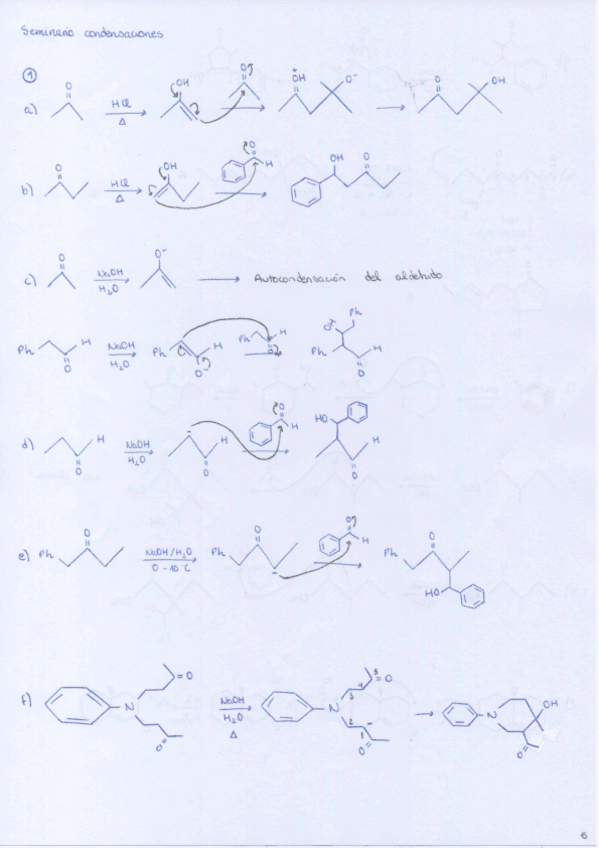 Seminario condensaciones
1
a) O HCl Δ OH O OH+ O- O OH
b) O HCl Δ OH O H OH O
c) O NaOH H2O O- Autocondensación del aldehido
Ph H O NaOH H2O Ph H O- Ph H O Ph Ph H O
d) H O NaOH H2O - H O O H HO H O
e) Ph O NaOH/H2O 0-10°C Ph O - O H Ph O HO
f) N O O NaOH H2O Δ N 5 O 4 3 2 - 1 O N OH O
6